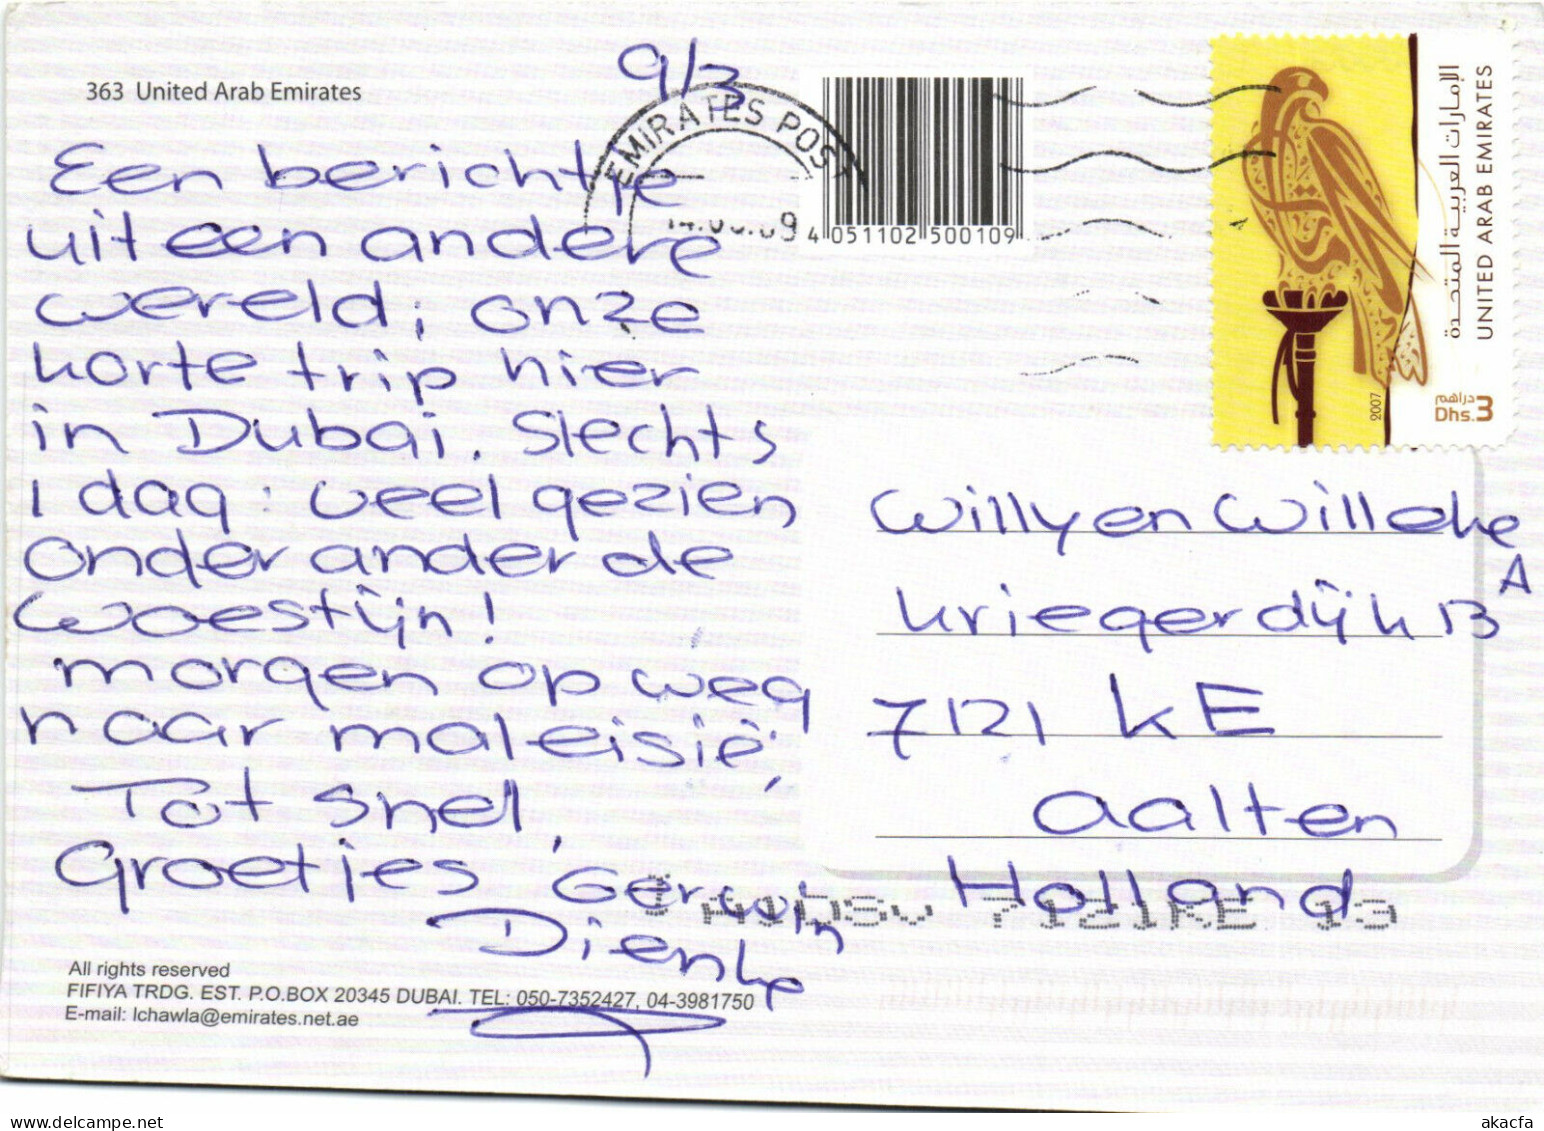 9/3
363 United Arab Emirates
EMIRATES POST
4 051102 500109
الإمارات العربية المتحدة
UNITED ARAB EMIRATES
2007
دراهم
Dhs. 3
Een berichtje
uit een andere
wereld, onze
korte trip hier
in Dubai. Slechts
1 dag. veel gezien,
onder andere de
woestijn!
morgen op weg
naar maleisië,
Tot snel.
Groetjes, Gerwin
Dienke
Willy en Willeke
Kriegerdijk 13 A
7121 KE
Aalten
Holland
7121KE 13
All rights reserved
FIFIYA TRDG. EST. P.O.BOX 20345 DUBAI. TEL: 050-7352427, 04-3981750
E-mail: lchawla@emirates.net.ae
www.delcampe.net
akacfa